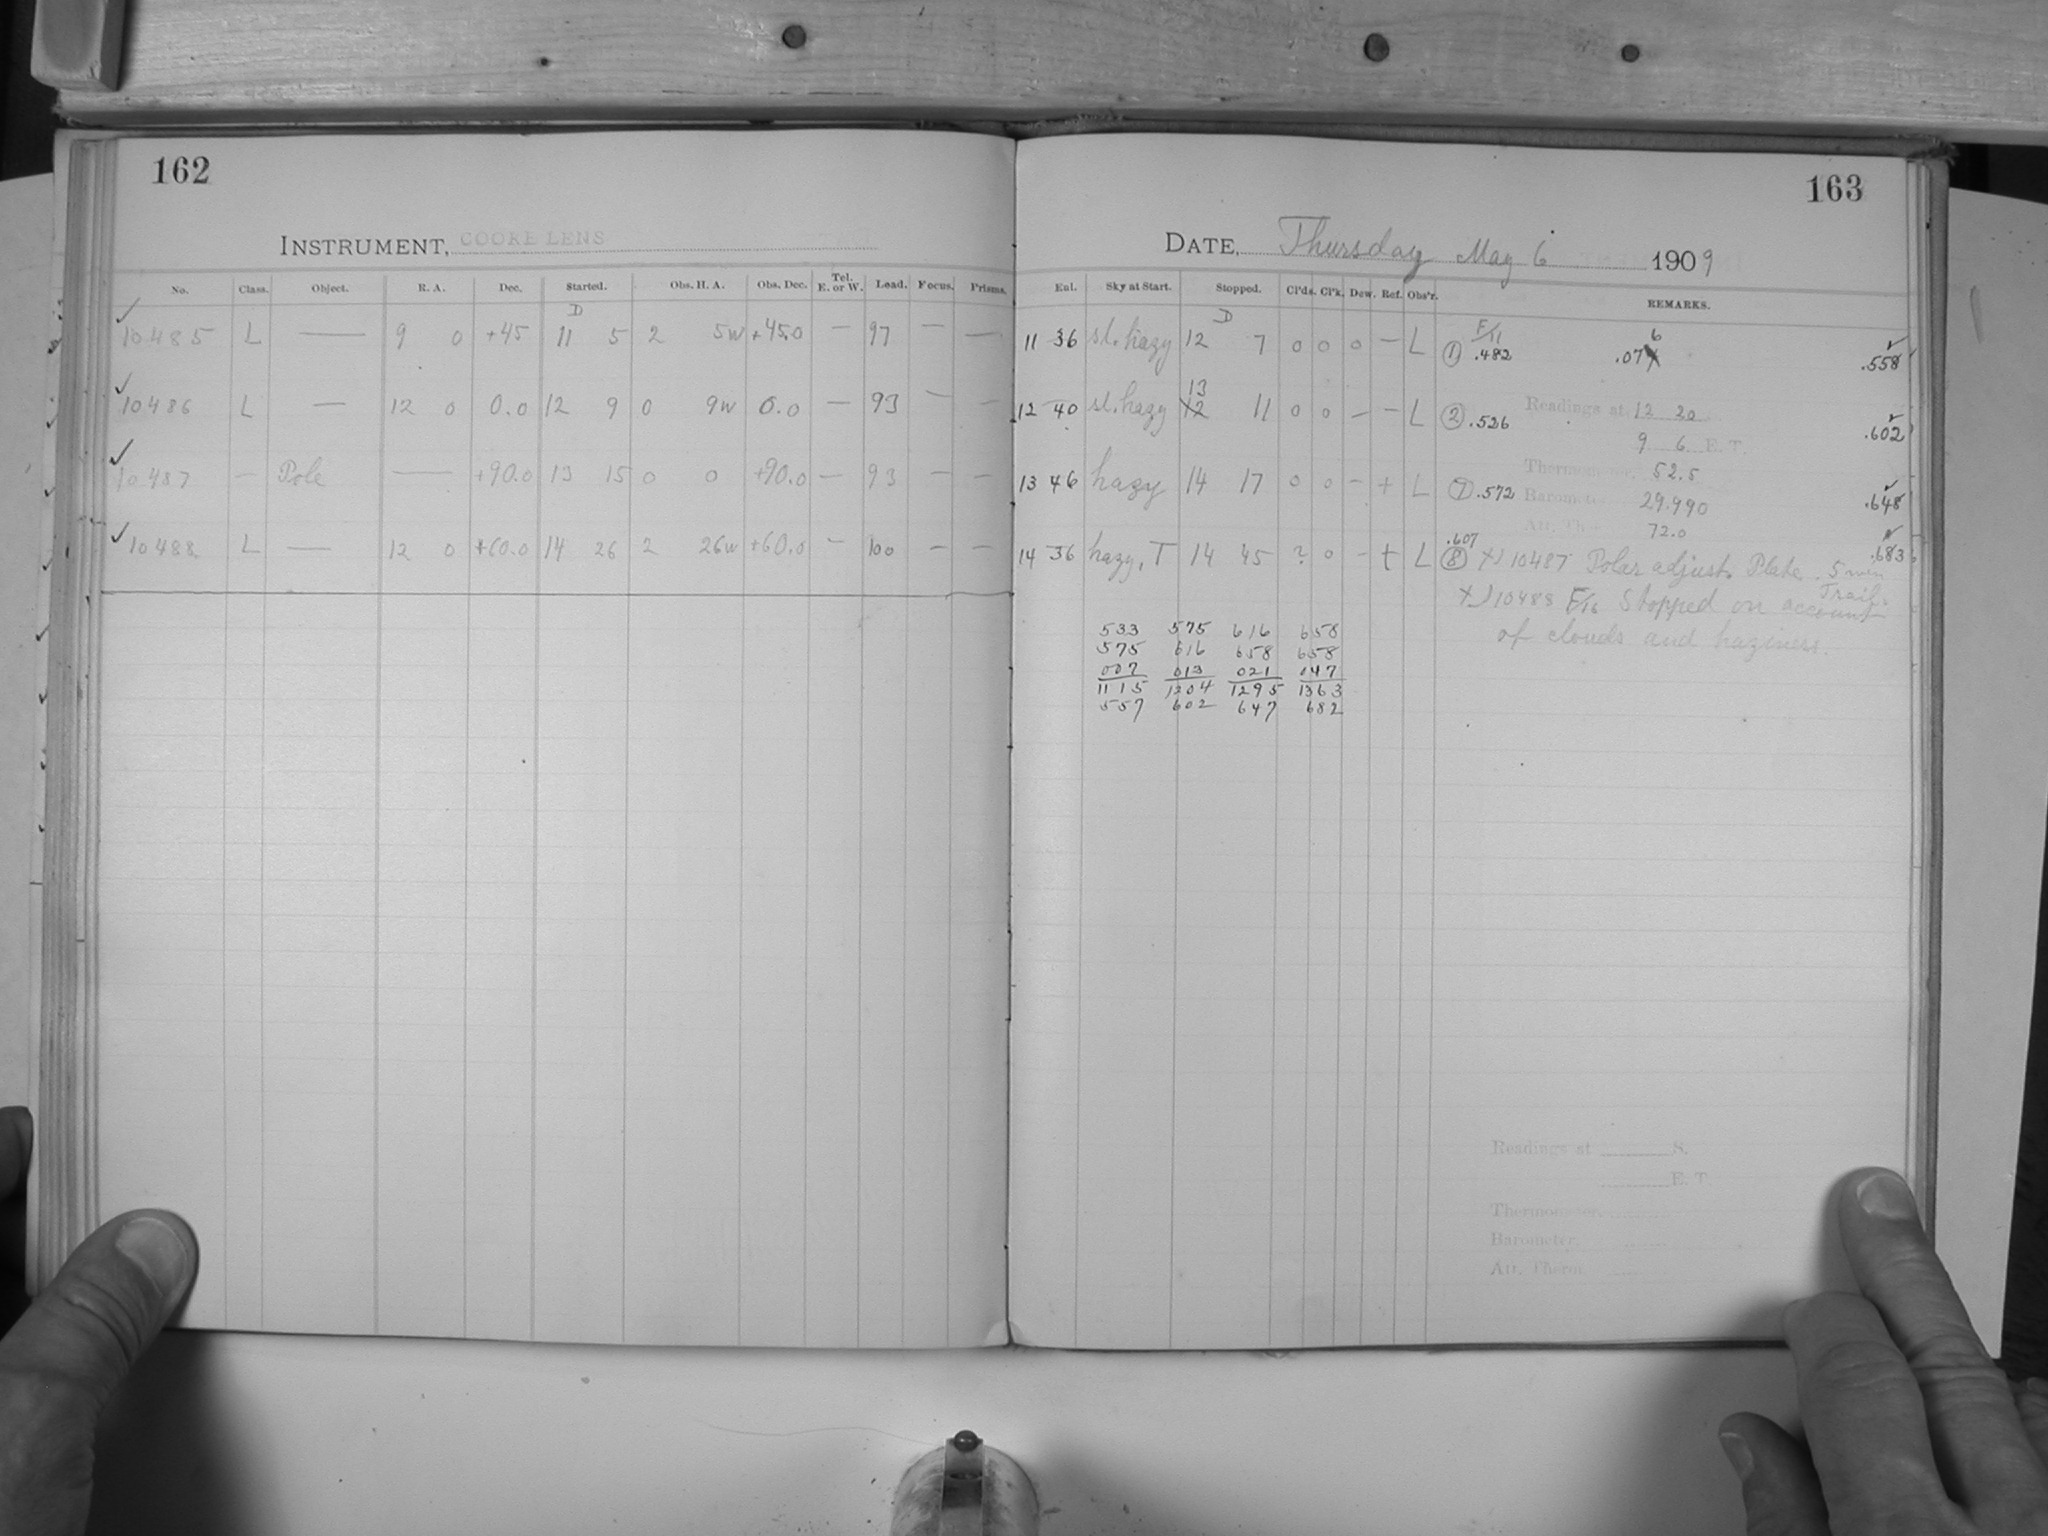 162
INSTRUMENT, COOKE LENS
No. Class. Object. R. A. Dec. Started. Obs. H. A. Obs. Dec. Tel. E. or W. Lead. Focus. Prisms.
D
10485 L — 9 0 +45 11 5 2 5w +45.0 — 97 — —
10486 L — 12 0 0.0 12 9 0 9w 0.0 — 93 — —
10487 — Pole — +90.0 13 15 0 0 +90.0 — 93 — —
10488 L — 12 0 +60.0 14 26 2 26w +60.0 — 100 — —
163
DATE, Thursday May 6 1909
Sky at Start. Stopped. Cl'ds. Cl'k. Dew. Ref. Obs'r. REMARKS.
D
11 36 sl. hazy 12 7 0 0 0 — L ① F/11 .482 .07 6 .558
12 40 sl. hazy 13 12 11 0 0 — — L ② .526 Readings at 12 20 .602
9 6 E. T.
13 46 hazy 14 17 0 0 — + L ⑦ .572 Thermometer. 52.5 .648
Barometer 29.990
Att. Ther 72.0
14 36 hazy, T 14 45 ? 0 — + L .607 ⑧ 10487 Polar adjust. Plate. 5 min Trail. .683
10488 F/16 Stopped on account
of clouds and haziness.
533 575 616 658
575 616 658 658
007 013 021 047
1115 1204 1295 1363
557 602 647 682
Readings at S.
E. T
Thermometer.
Barometer.
Att. Therm.